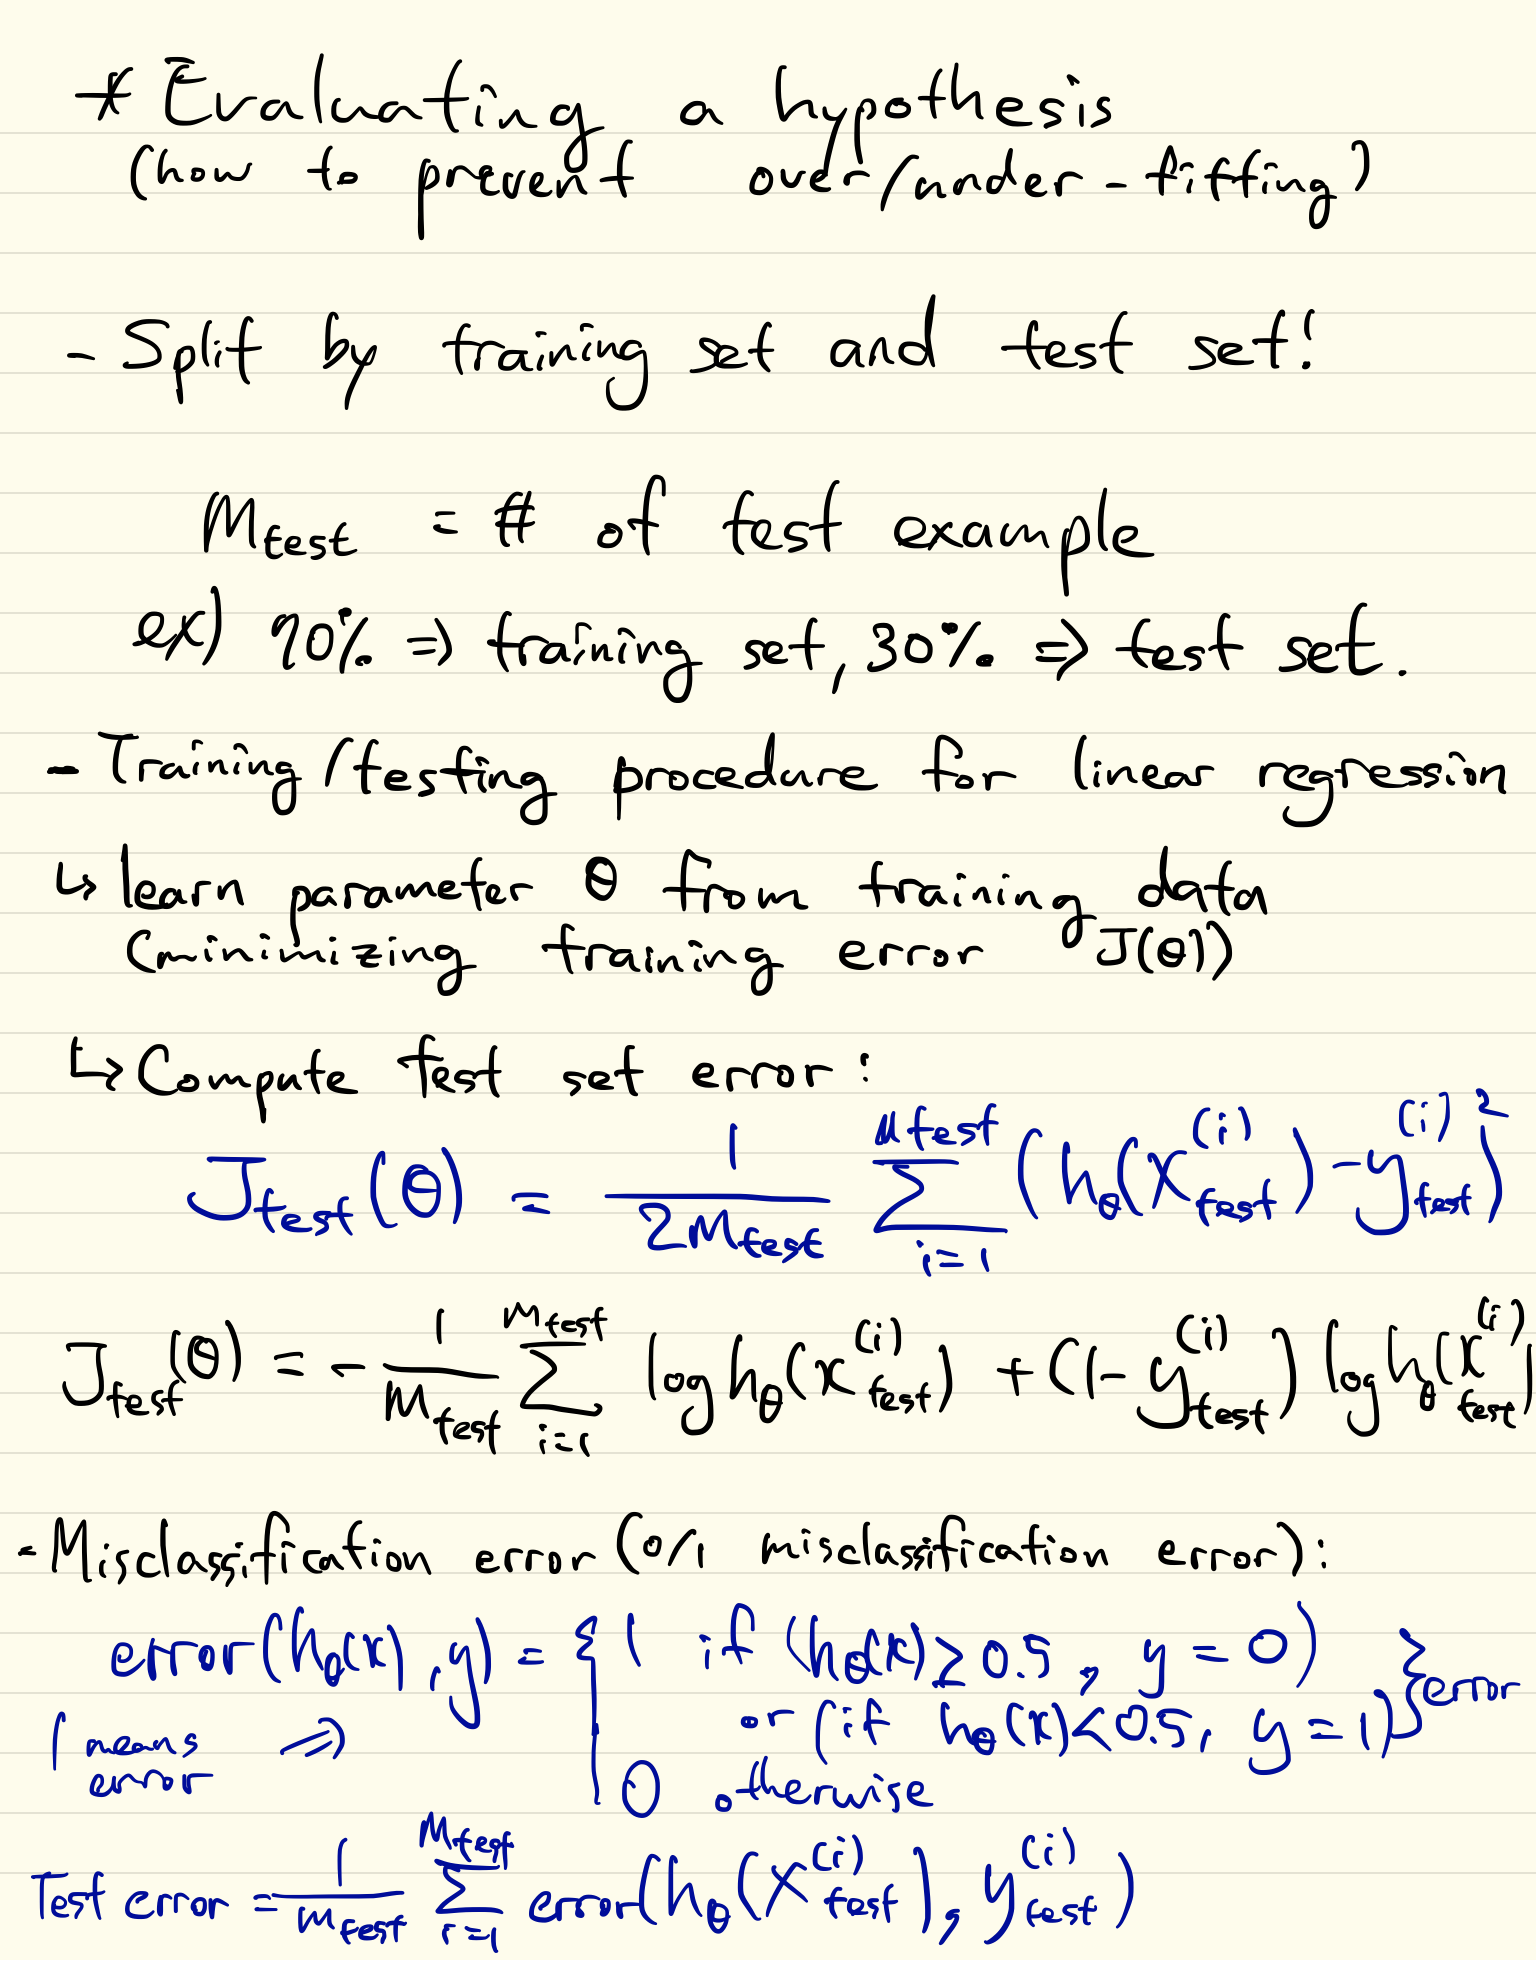 * Evaluating a hypothesis
(how to prevent over/under-fitting)
- Split by training set and test set!
M_test = # of test example
ex) 70% => training set, 30% => test set.
- Training/testing procedure for linear regression
↳ learn parameter θ from training data
(minimizing training error J(θ))
↳ Compute test set error:
J_test(θ) = 1/(2M_test) Σ_{i=1}^{M_test} (h_θ(x_test^(i)) - y_test^(i))^2
J_test(θ) = - 1/m_test Σ_{i=1}^{m_test} log h_θ(x_test^(i)) + (1 - y_test^(i)) log h_θ(x_test^(i))
- Misclassification error (0/1 misclassification error):
error(h_θ(x), y) = { 1 if (h_θ(x) ≥ 0.5, y = 0)
or (if h_θ(x) < 0.5, y = 1) } error
1 means error =>
0 otherwise
Test error = 1/m_test Σ_{i=1}^{M_test} error(h_θ(x_test^(i)), y_test^(i))